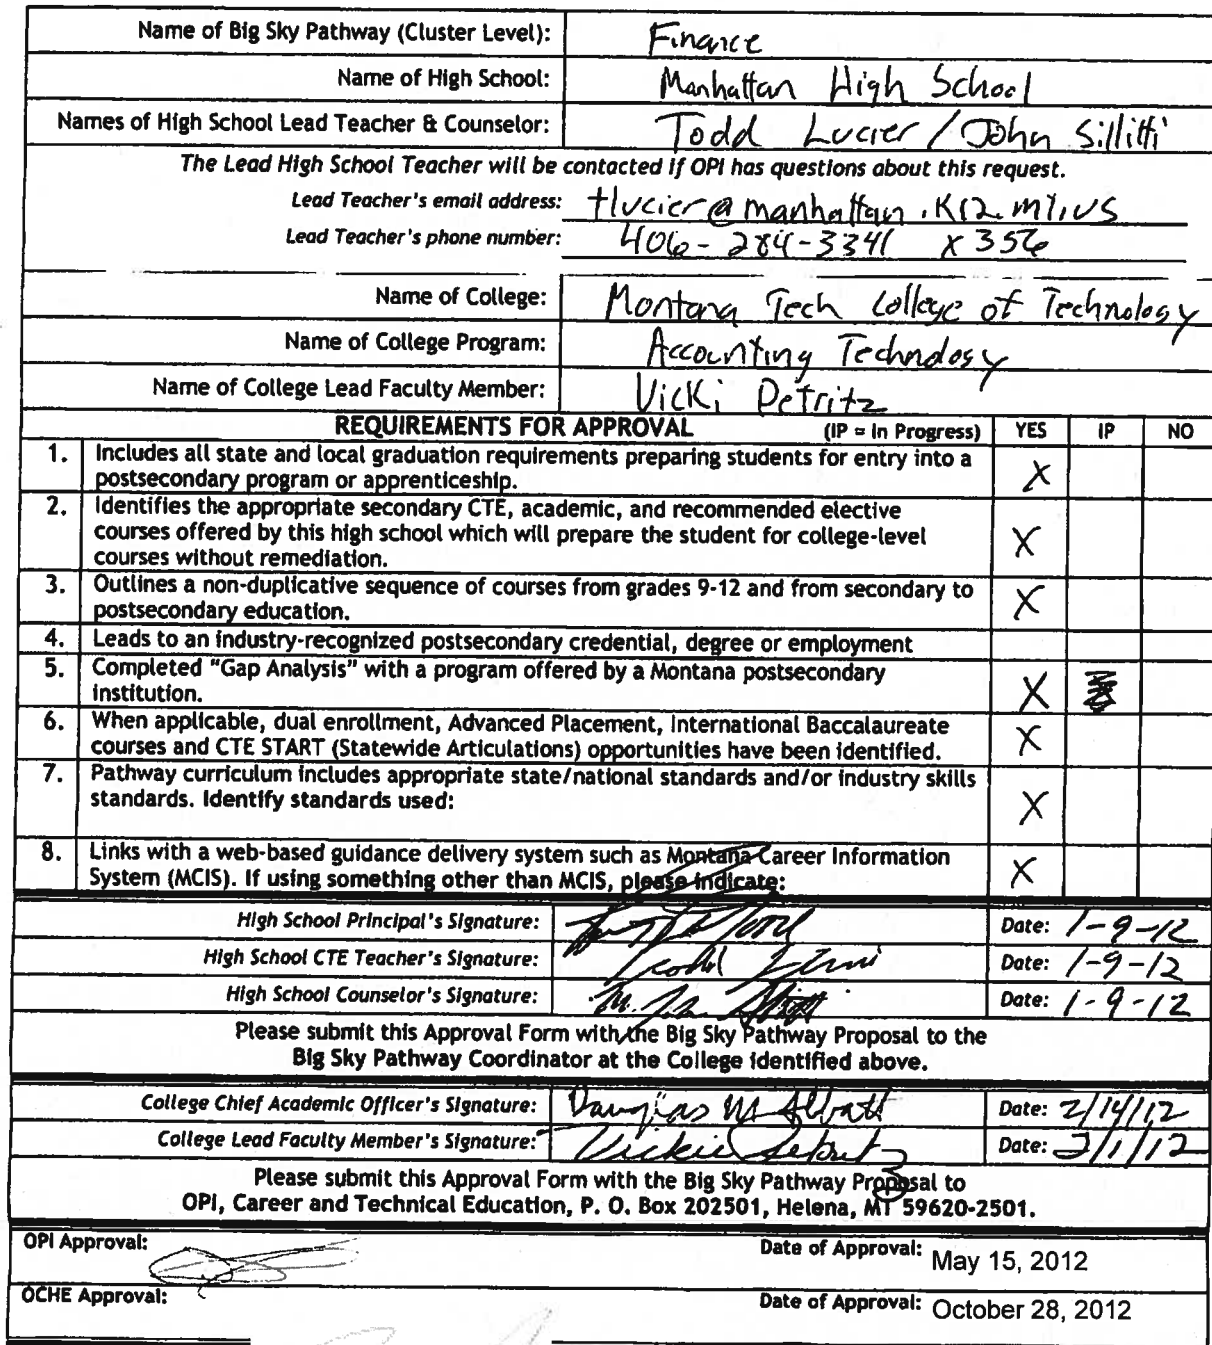 Name of Big Sky Pathway (Cluster Level): Finance
Name of High School: Manhattan High School
Names of High School Lead Teacher & Counselor: Todd Lucier / John Sillitti
The Lead High School Teacher will be contacted if OPI has questions about this request.
Lead Teacher's email address: tlucier@manhattan.k12.mt.us
Lead Teacher's phone number: 406-284-3341 x356
Name of College: Montana Tech College of Technology
Name of College Program: Accounting Technology
Name of College Lead Faculty Member: Vicki Petritz
REQUIREMENTS FOR APPROVAL (IP = In Progress) YES IP NO
1. Includes all state and local graduation requirements preparing students for entry into a
postsecondary program or apprenticeship. X
2. Identifies the appropriate secondary CTE, academic, and recommended elective
courses offered by this high school which will prepare the student for college-level
courses without remediation. X
3. Outlines a non-duplicative sequence of courses from grades 9-12 and from secondary to
postsecondary education. X
4. Leads to an industry-recognized postsecondary credential, degree or employment
5. Completed "Gap Analysis" with a program offered by a Montana postsecondary
institution. X
6. When applicable, dual enrollment, Advanced Placement, International Baccalaureate
courses and CTE START (Statewide Articulations) opportunities have been identified. X
7. Pathway curriculum includes appropriate state/national standards and/or industry skills
standards. Identify standards used: X
8. Links with a web-based guidance delivery system such as Montana Career Information
System (MCIS). If using something other than MCIS, please indicate: X
High School Principal's Signature: Date: 1-9-12
High School CTE Teacher's Signature: Date: 1-9-12
High School Counselor's Signature: Date: 1-9-12
Please submit this Approval Form with the Big Sky Pathway Proposal to the
Big Sky Pathway Coordinator at the College identified above.
College Chief Academic Officer's Signature: Douglas M Abbott Date: 2/14/12
College Lead Faculty Member's Signature: Vickie Petritz Date: 2/1/12
Please submit this Approval Form with the Big Sky Pathway Proposal to
OPI, Career and Technical Education, P. O. Box 202501, Helena, MT 59620-2501.
OPI Approval: Date of Approval: May 15, 2012
OCHE Approval: Date of Approval: October 28, 2012